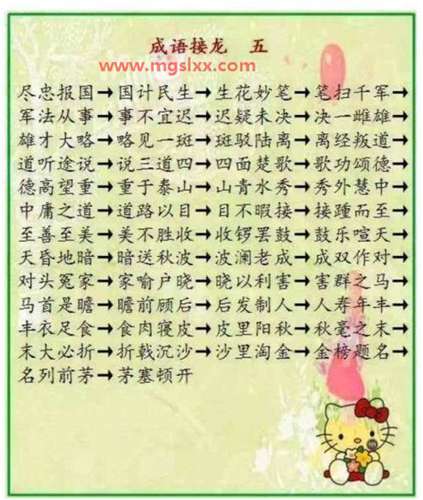 成语接龙 五
www.mgslxx.com
尽忠报国→国计民生→生花妙笔→笔扫千军→
军法从事→事不宜迟→迟疑未决→决一雌雄→
雄才大略→略见一斑→斑驳陆离→离经叛道→
道听途说→说三道四→四面楚歌→歌功颂德→
德高望重→重于泰山→山青水秀→秀外慧中→
中庸之道→道路以目→目不暇接→接踵而至→
至善至美→美不胜收→收锣罢鼓→鼓乐喧天→
天昏地暗→暗送秋波→波澜老成→成双作对→
对头冤家→家喻户晓→晓以利害→害群之马→
马首是瞻→瞻前顾后→后发制人→人寿年丰→
丰衣足食→食肉寝皮→皮里阳秋→秋毫之末→
末大必折→折戟沉沙→沙里淘金→金榜题名→
名列前茅→茅塞顿开